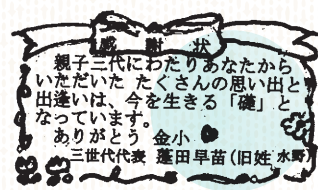 感謝状
親子三代にわたりあなたから
いただいた たくさんの思い出と
出逢いは、今を生きる「礎」と
なっています。
ありがとう 金小
三世代代表 蓬田早苗(旧姓 水野)